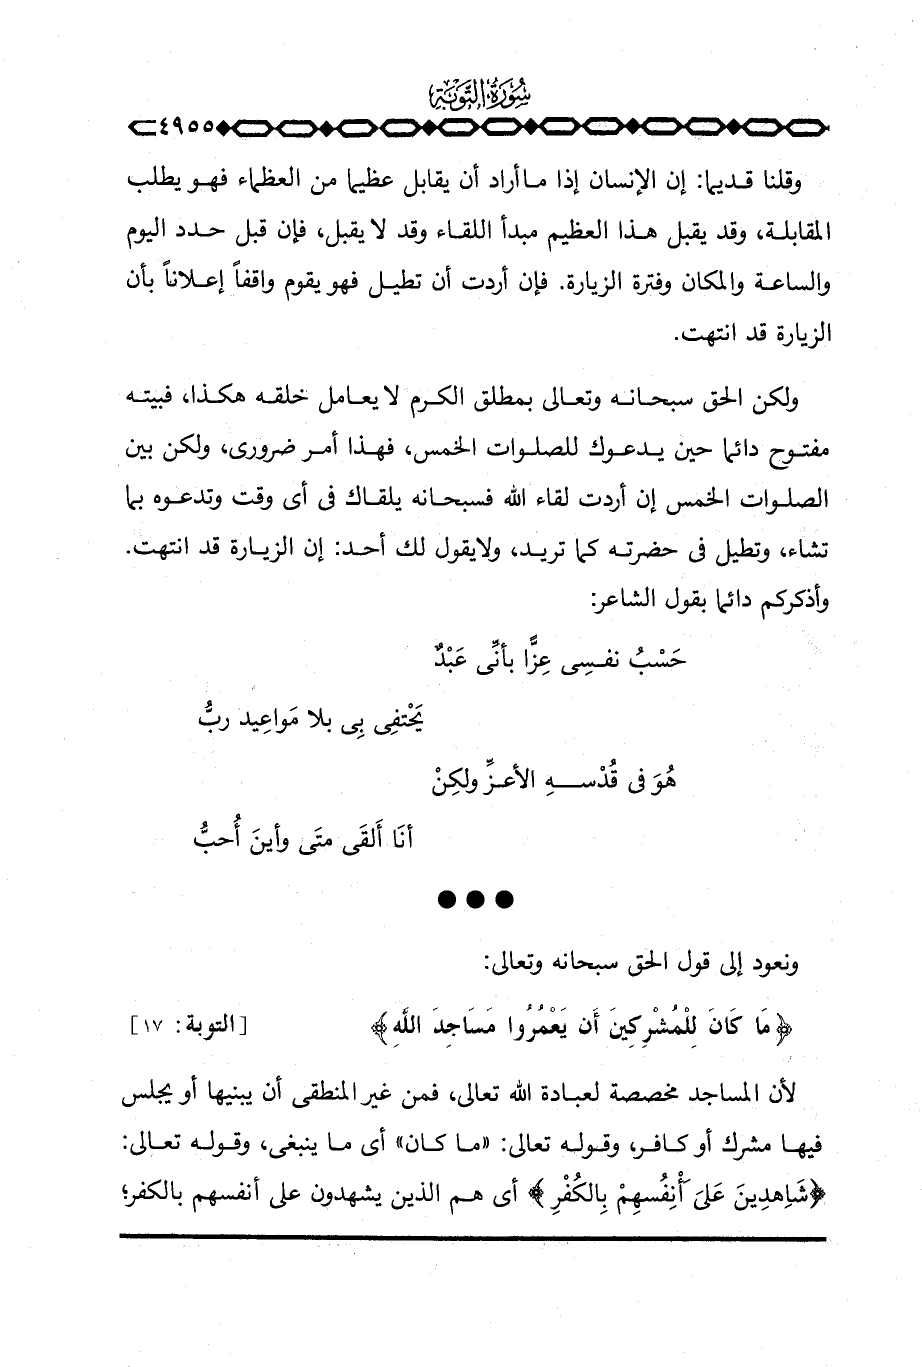 سُورَةُ التَّوْبَةِ
٤٩٥٥
وقلنا قديما: إن الإنسان إذا ما أراد أن يقابل عظيما من العظماء فهو يطلب
المقابلة، وقد يقبل هذا العظيم مبدأ اللقاء وقد لا يقبل، فإن قبل حدد اليوم
والساعة والمكان وفترة الزيارة. فإن أردت أن تطيل فهو يقوم واقفاً إعلاناً بأن
الزيارة قد انتهت.
ولكن الحق سبحانه وتعالى بمطلق الكرم لا يعامل خلقه هكذا، فبيته
مفتوح دائما حين يدعوك للصلوات الخمس، فهذا أمر ضرورى، ولكن بين
الصلوات الخمس إن أردت لقاء الله فسبحانه يلقاك فى أى وقت وتدعوه بما
تشاء، وتطيل فى حضرته كما تريد، ولايقول لك أحد: إن الزيارة قد انتهت.
وأذكركم دائما بقول الشاعر:
حَسْبُ نفسِى عِزًّا بأنِّى عَبْدٌ
يَحْتفِى بِى بلا مَواعِيد ربُّ
هُوَ فى قُدْسهِ الأعزِّ ولكِنْ
أنَا أَلقَى متَى وأينَ أُحبُّ
●●●
ونعود إلى قول الحق سبحانه وتعالى:
﴿ مَا كَانَ لِلْمُشْرِكِينَ أَن يَعْمُرُوا مَسَاجِدَ اللَّهِ ﴾ [التوبة: ١٧]
لأن المساجد مخصصة لعبادة الله تعالى، فمن غير المنطقى أن يبنيها أو يجلس
فيها مشرك أو كافر، وقوله تعالى: «ما كان» أى ما ينبغى، وقوله تعالى:
﴿ شَاهِدِينَ عَلَىٰ أَنفُسِهِمْ بِالكُفْرِ ﴾ أى هم الذين يشهدون على أنفسهم بالكفر؛